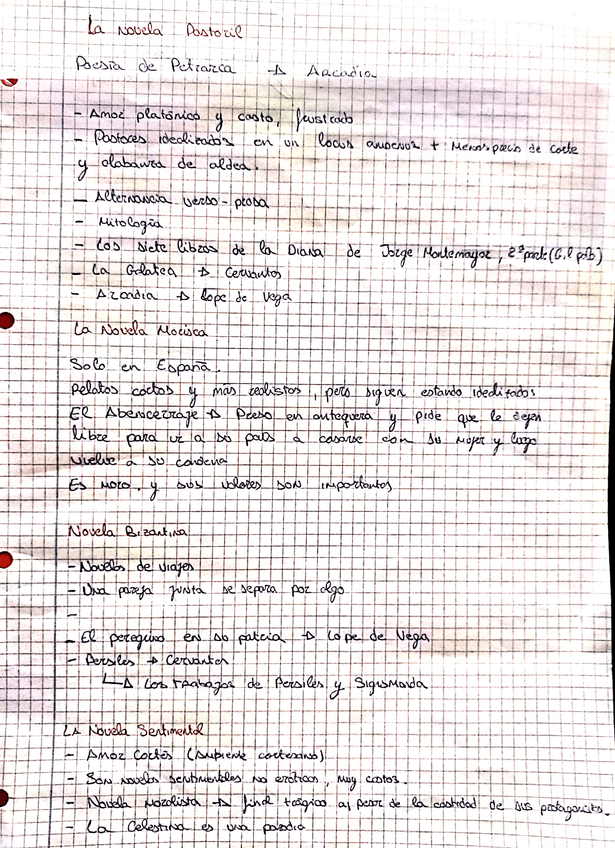 La Novela Pastoril
Poesía de Petrarca → Arcadia
- Amor platónico y casto, frustrado
- Pastores idealizados en un locus amoenus + Menosprecio de corte
y alabanza de aldea.
- Alternancia verso-prosa
- Mitología
- Los siete libros de la Diana de Jorge Montemayor, 2ª parte (Gil polo)
- La Galatea → Cervantes
- Arcadia → Lope de Vega
La Novela Morisca
Solo en España.
Relatos cortos y más realistas, pero siguen estando idealizados
El Abencerraje → Preso en antequera y pide que le dejen
libre para ir a su país a casarse con su mujer y luego
vuelve a su condena
Es moro, y sus valores son importantes
Novela Bizantina
- Novelas de viajes
- Una pareja junta se separa por algo
-
- El peregrino en su patria → Lope de Vega
- Persiles → Cervantes
→ Los trabajos de Persiles y Sigismunda
La Novela Sentimental
- Amor Cortés (Ambiente cortesano)
- Son novelas sentimentales no eróticas, muy castas.
- Novela moralista → final trágico a pesar de la castidad de sus protagonistas.
- La Celestina es una parodia